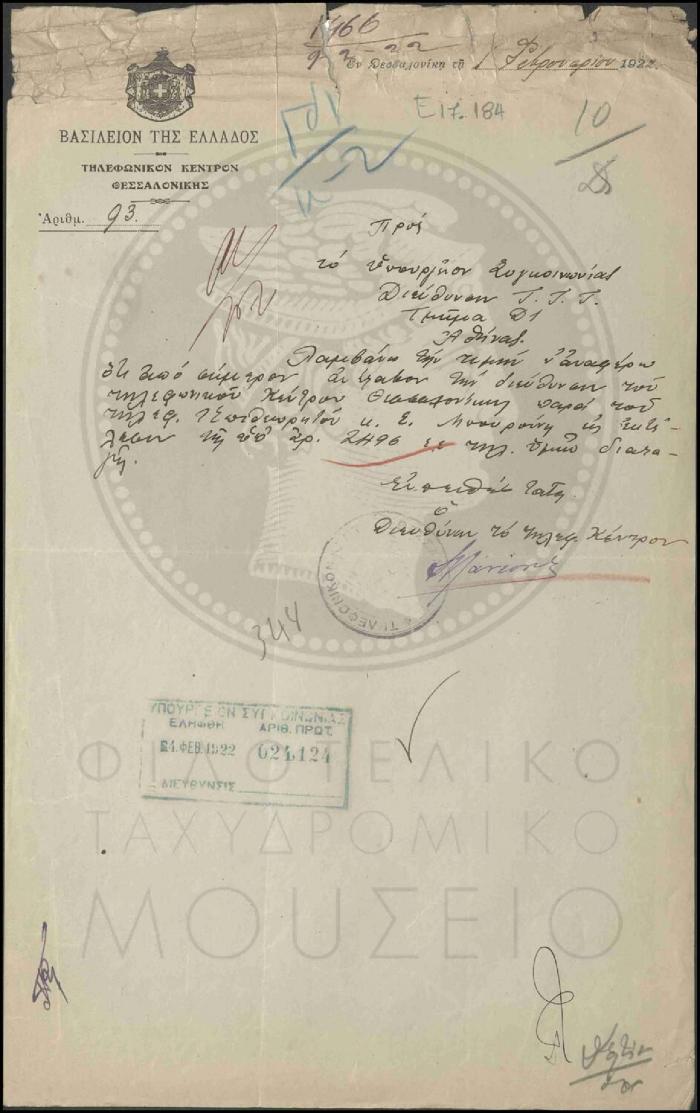 1466
9-2-22
Ἐν Θεσσαλονίκῃ τῇ 1 Φεβρουαρίου 1922
Ε17.184
10
ΒΑΣΙΛΕΙΟΝ ΤΗΣ ΕΛΛΑΔΟΣ
ΤΗΛΕΦΩΝΙΚΟΝ ΚΕΝΤΡΟΝ
ΘΕΣΣΑΛΟΝΙΚΗΣ
Ἀριθμ. 93.
Πρὸς
τὸ Ὑπουργεῖον Συγκοινωνίας
Διεύθυνσιν Τ.Τ.Τ.
Τμῆμα Δ1
Ἀθήνας
Λαμβάνω τὴν τιμὴν ν' ἀναφέρω
ὅτι ἀπὸ σήμερον ἀνέλαβον τὴν διεύθυνσιν τοῦ
τηλεφωνικοῦ Κέντρου Θεσσαλονίκης παρὰ τοῦ
τηλεφ. Ἐπιθεωρητοῦ κ. Ε. εἰς ἐκτέ-
λεσιν τῆς ὑπ' ἀρ. 2496 τηλ. ὑμῶν διατα-
γῆς.
Εὐπειθέστατος
ὁ
Διευθύνων τὸ τηλεφ. Κέντρον
ΤΗΛΕΦΩΝΙΚΟΝ
344
ΥΠΟΥΡΓΕΙΟΝ ΣΥΓΚΟΙΝΩΝΙΑΣ
ΕΛΗΦΘΗ ΑΡΙΘ. ΠΡΩΤ.
24. ΦΕΒ. 1922 024124
ΔΙΕΥΘΥΝΣΙΣ
ΦΙΛΟΤΕΛΙΚΟ
ΤΑΧΥΔΡΟΜΙΚΟ
ΜΟΥΣΕΙΟ